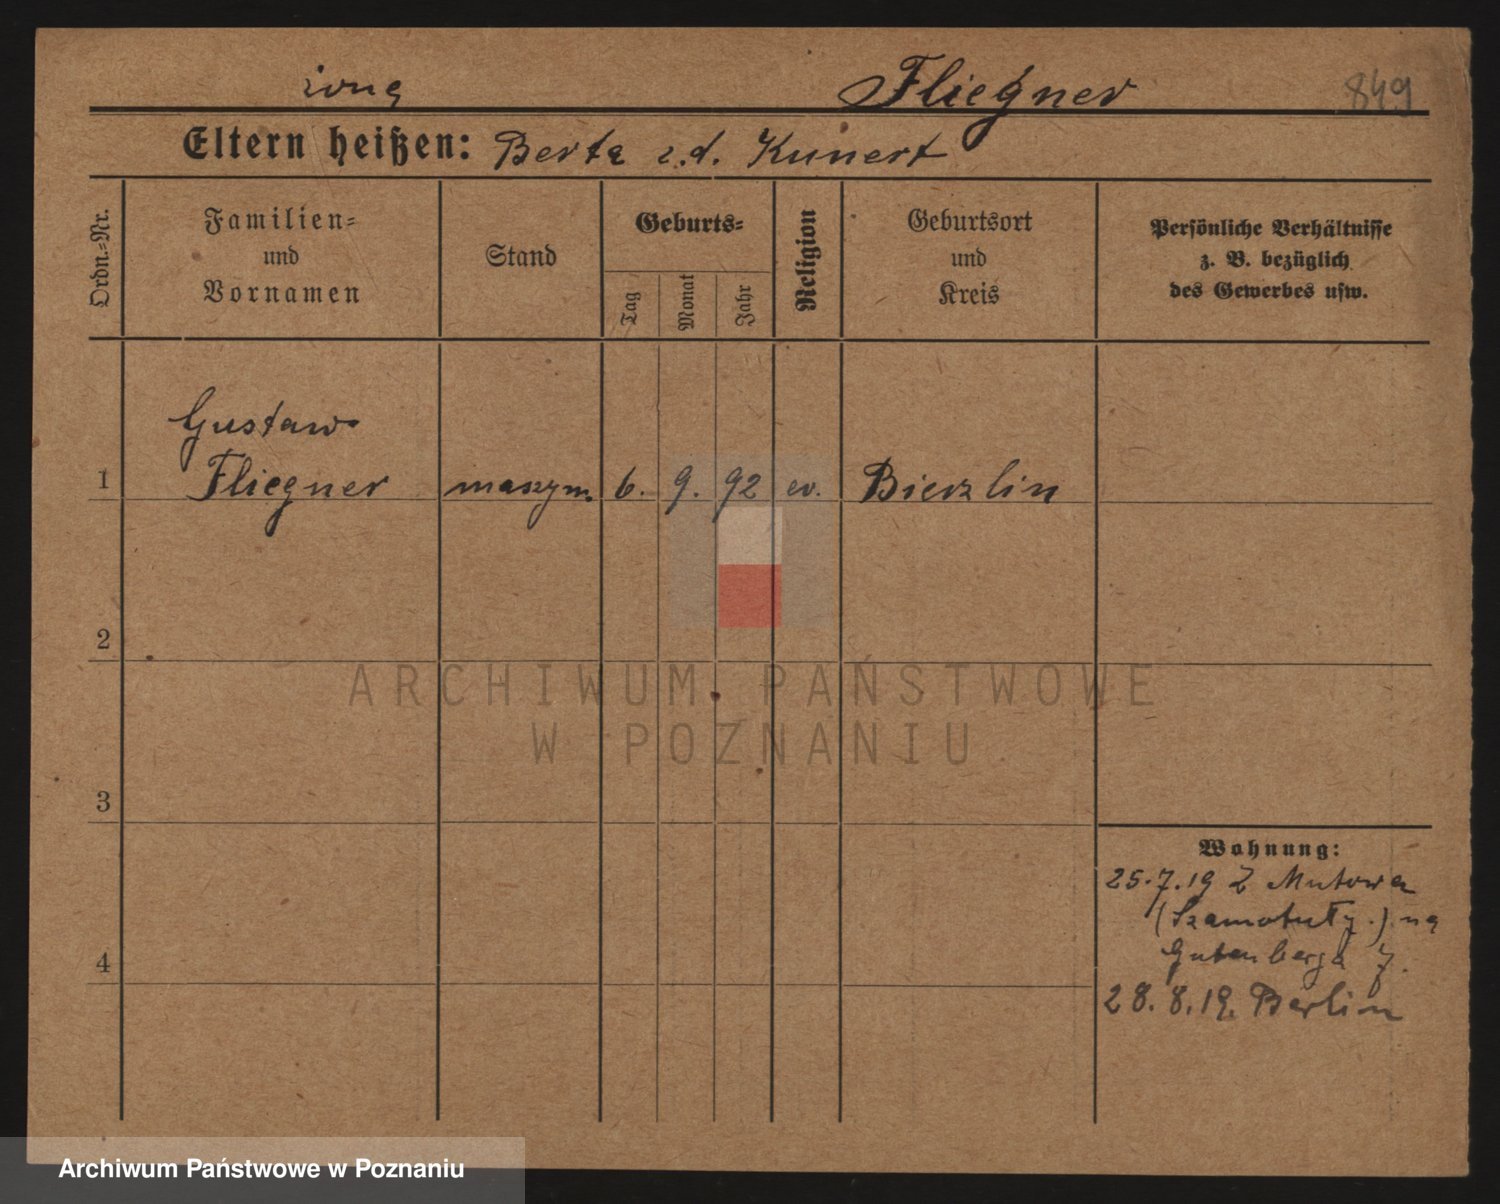 żona Fliegner 849
Eltern heißen: Berta z.d. Kunert
Ordn.-Nr.
Familien-
und
Vornamen
Stand
Geburts-
Tag
Monat
Jahr
Religion
Geburtsort
und
Kreis
Persönliche Verhältnisse
z. B. bezüglich
des Gewerbes usw.
Gustaw
1 Fliegner maszyn. 6. 9. 92 ev. Bierzlin
2
3
4
Wohnung:
25.7.19 Z Mutowa
(Szamotuły.) na
Gutenberga 7.
28.8.19. Berlin
ARCHIWUM PAŃSTWOWE
W POZNANIU
Archiwum Państwowe w Poznaniu